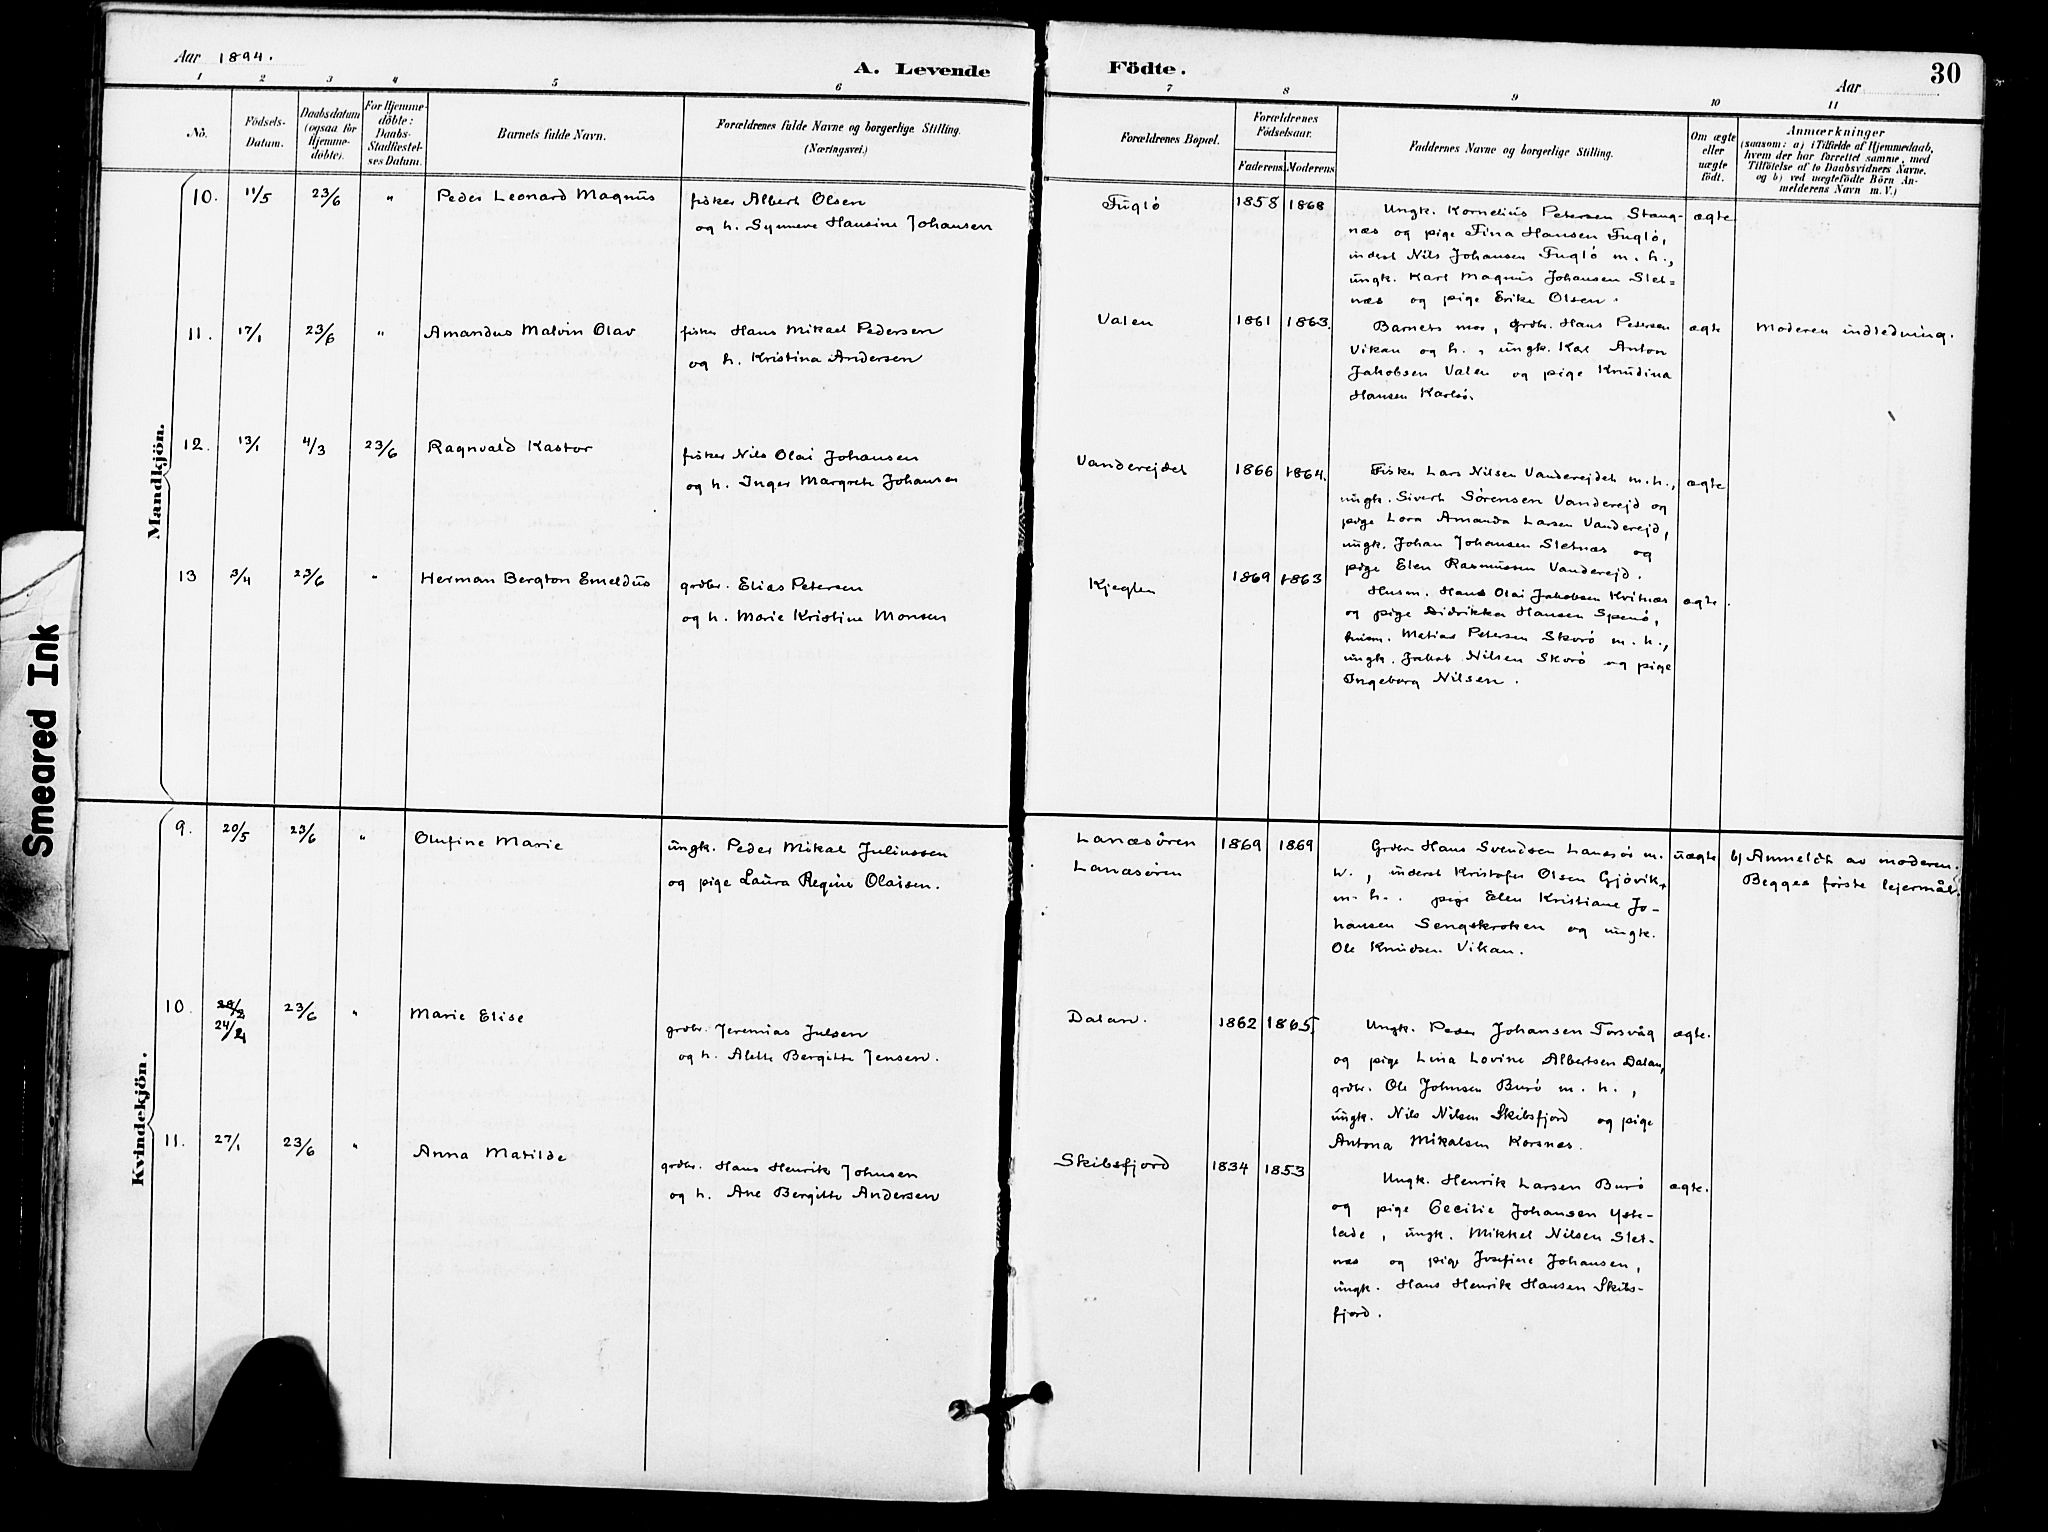 Aar 1894.
A. Levende
Födte.
Aar
30
1 2 3 4 5 6 7 8 9 10 11
No.
Födsels-
Datum.
Daabsdatum
(ogsaa for
Hjemme-
döbte).
For Hjemme-
döbte:
Daabs-
Stadfæstel-
ses Datum.
Barnets fulde Navn.
Forældrenes fulde Navne og borgerlige Stilling.
(Næringsvei.)
Forældrenes Bopæl.
Forældrenes
Födselsaar.
Faderens Moderens
Faddernes Navne og borgerlige Stilling.
Om ægte
eller
uægte
födt.
Anmærkninger
(saasom: a) i Tilfælde af Hjemmedaab,
hvem der har forrettet samme, med
Tilföielse af to Daabsvidners Navne.
og b) ved uægtefödte Börn An-
melderens Navn m. V.)
Mandkjön.
10. 11/5 23/6 " Peder Leonard Magnus
fisker Albert Olsen
og h. Synneve Hansine Johansen
Fuglö 1858 1868
Ungk. Kornelius Petersen Stang-
næs og pige Fina Hansen Fuglö,
inderst Nils Johansen Fuglö m. h.,
ungk. Karl Magnus Johansen Slet-
næs og pige Erika Olsen.
ægte
11. 17/1 23/6 " Amandus Malvin Olav
fisker Hans Mikael Pedersen
og h. Kristina Andersen
Valen 1861 1863.
Barnets mor, grdbr. Hans Petersen
Vikan og h., ungk. Karl Anton
Jakobsen Valen og pige Knudina
Hansen Karlsö.
ægte
Moderen indledning.
12. 13/1 4/3 23/6 Ragnvald Kastor
fisker Nils Olai Johansen
og h. Inger Margrete Johansen
Vanderejdet 1866 1864.
Fisker Lars Nilsen Vanderejdet m. h.,
ungk. Sivert Sörensen Vanderejd og
pige Lora Amanda Larsen Vanderejd,
ungk. Johan Johansen Sletnæs og
pige Elen Rasmussen Vanderejd.
ægte
13 3/4 23/6 " Herman Bergton Emeldus
grdbr. Elias Petersen
og h. Marie Kristine Monsen
Kjeglen 1869 1863
Husm. Hans Olai Jakobsen Kvitnæs
og pige Didrikka Hansen Spenö,
husm. Matias Petersen Skorö m. h.,
ungk. Jakob Nilsen Skorö og pige
Ingeborg Nilsen.
ægte.
Smeared Ink
Kvindekjön.
9. 20/5 23/6 " Olufine Marie
ungk. Peder Mikal Juliussen
og pige Laura Regine Olaisen.
Lanæsören
Lanæsören
1869 1869
Grdbr Hans Svendsen Lanesör m.
h., inderst Kristofer Olsen Gjövik,
m. h.. pige Elen Kristiane Jo-
hansen Sengskroken og ungk.
Ole Knudsen Vikan.
uægte
b) Anmeldt av moderen.
Begges förste lejermål.
10. 28/2 23/6 " Marie Elise
24/2
grdbr. Jeremias Julsen
og h. Alette Bergitte Jensen.
Dalan. 1862 1865.
Ungk. Peder Johansen Torsvåg
og pige Lina Lovine Albertsen Dalan,
grdbr. Ole Johnsen Burö m. h.,
ungk. Nils Nilsen Skibsfjord og pige
Antona Mikalsen Korsnæs.
ægte.
11. 27/1 23/6 " Anna Matilde
grdbr. Hans Henrik Johnsen
og h. Ane Bergitte Andersen
Skibsfjord 1834 1853
Ungk. Henrik Larsen Burö
og pige Cecilie Johansen Yste-
lade, ungk. Mikkel Nilsen Slet-
næs og pige Josefine Johansen,
ungk. Hans Henrik Hansen Skibs-
fjord.
ægte.